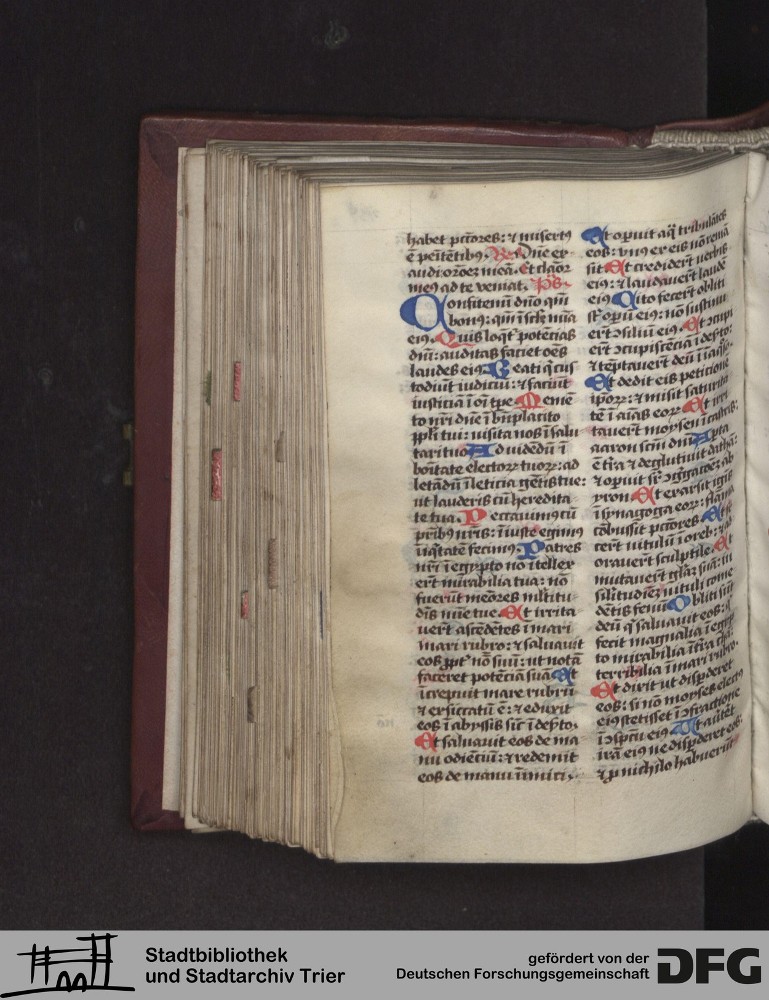 habet pctores: ⁊ misertꝰ
ē penitētibꝰ. Vs. Dn̄e ex
audi orōez meā. Et clāor
meꝰ ad te veniat. Ps.
Confitemini dn̄o qm̄
bonꝰ: qm̄ ī sclm mīa
eiꝰ. Quis loqt̉ potēcias
dn̄i: auditas faciet oēs
laudes eiꝰ Beati q̉ cus
todiūt iudiciū: ⁊ faciūt
iusticiā ī oī tpe Memē
to nr̄i dn̄e ī bn̄placito
ppl̉i tui: visita nos ī salu
tari tuo Ad videdū ī
bōitate electorꝝ tuorꝝ: ad
letādū ī leticia gētis tue:
ut lauderis cū heredita
te tua. Peccauimꝰ cū
prībꝰ nr̄is: īiuste egimꝰ
īiq̉tatē fecimꝰ. Patres
nr̄i ī egypto nō ītellex
ert̄ mirabilia tua: nō
fuerūt meōres mltitu
dīs mīe tue Et irrita
uert̄ ascēdētes ī mari
mari rubro: ⁊ saluauit
eos ꝓpt̉ nō suū: ut notā
faceret potēciā suā Et
īcrepuit mare rubrū
⁊ exsiccatū ē: ⁊ eduxit
eos ī abyssis sic̄ ī desto.
Et saluauit eos de ma
nu odiēciū: ⁊ redemit
eos de manu inimici.
Et oꝑuit aq̄ tribulātes
eos: vnꝰ ex eis nō remā
sit Et credidert̄ verbis
eiꝰ: ⁊ laudauert̄ laudē
eiꝰ Cito fecert̄ obliti
st̄ oꝑū eiꝰ: nō sustinu
ert̄ ꝯsiliū eiꝰ. Et ꝯcupi
ert̄ ꝯcupiscēciā ī desto:
⁊ tēptauert̄ deū ī īaq̉so.
Et dedit eis peticionē
ipoꝝ: ⁊ misit saturita
tē ī aīas eoꝝ Et irri
tauert̄ moysen ī castris:
aaron scūm dn̄i Apta
ē tr̄a ⁊ deglutiuit dathā:
⁊ oꝑuit sr̄ ꝯg̉gacōez ab
yron. Et exarsit ignis
ī synagoga eoꝝ: flāma
cōbussit pctores Et fe
cert̄ vitulū ī oreb: ⁊ ad
orauert̄ sculptile. Et
mutauert̄ gl̄az suā: ī
sil̉itudīez vituli come
dētis fenū Obliti sūt
deū q̉ saluauit eos: q̉
fecit magnalia ī egyp
to mirabilia ī tr̄a chā:
terribilia ī mari rubro.
Et dixit ut disꝑderet
eos: si nō moyses electꝰ
eiꝰ stetisset ī ꝯfractione
ī ꝯspcū eiꝰ Ut auertet
irā eiꝰ ne disꝑderet eos:
⁊ ꝓ nichilo habuerūt
Stadtbibliothek
und Stadtarchiv Trier
gefördert von der
Deutschen Forschungsgemeinschaft
DFG